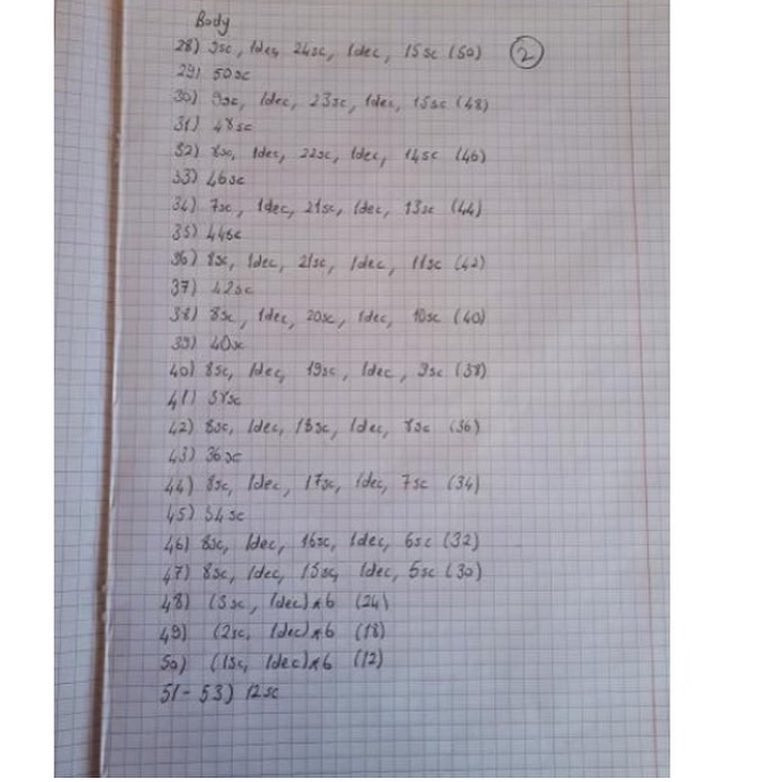 Body
28) 9sc, 1dec, 24sc, 1dec, 15sc (50) 2
29) 50sc
30) 9sc, 1dec, 23sc, 1dec, 15sc (48)
31) 48sc
32) 8sc, 1dec, 22sc, 1dec, 14sc (46)
33) 46sc
34) 7sc, 1dec, 21sc, 1dec, 13sc (44)
35) 44sc
36) 8sc, 1dec, 21sc, 1dec, 11sc (42)
37) 42sc
38) 8sc, 1dec, 20sc, 1dec, 10sc (40)
39) 40sc
40) 8sc, 1dec, 19sc, 1dec, 9sc (38)
41) 38sc
42) 8sc, 1dec, 18sc, 1dec, 8sc (36)
43) 36sc
44) 8sc, 1dec, 17sc, 1dec, 7sc (34)
45) 34sc
46) 8sc, 1dec, 16sc, 1dec, 6sc (32)
47) 8sc, 1dec, 15sc, 1dec, 5sc (30)
48) (3sc, 1dec)*6 (24)
49) (2sc, 1dec)*6 (18)
50) (1sc, 1dec)*6 (12)
51-53) 12sc